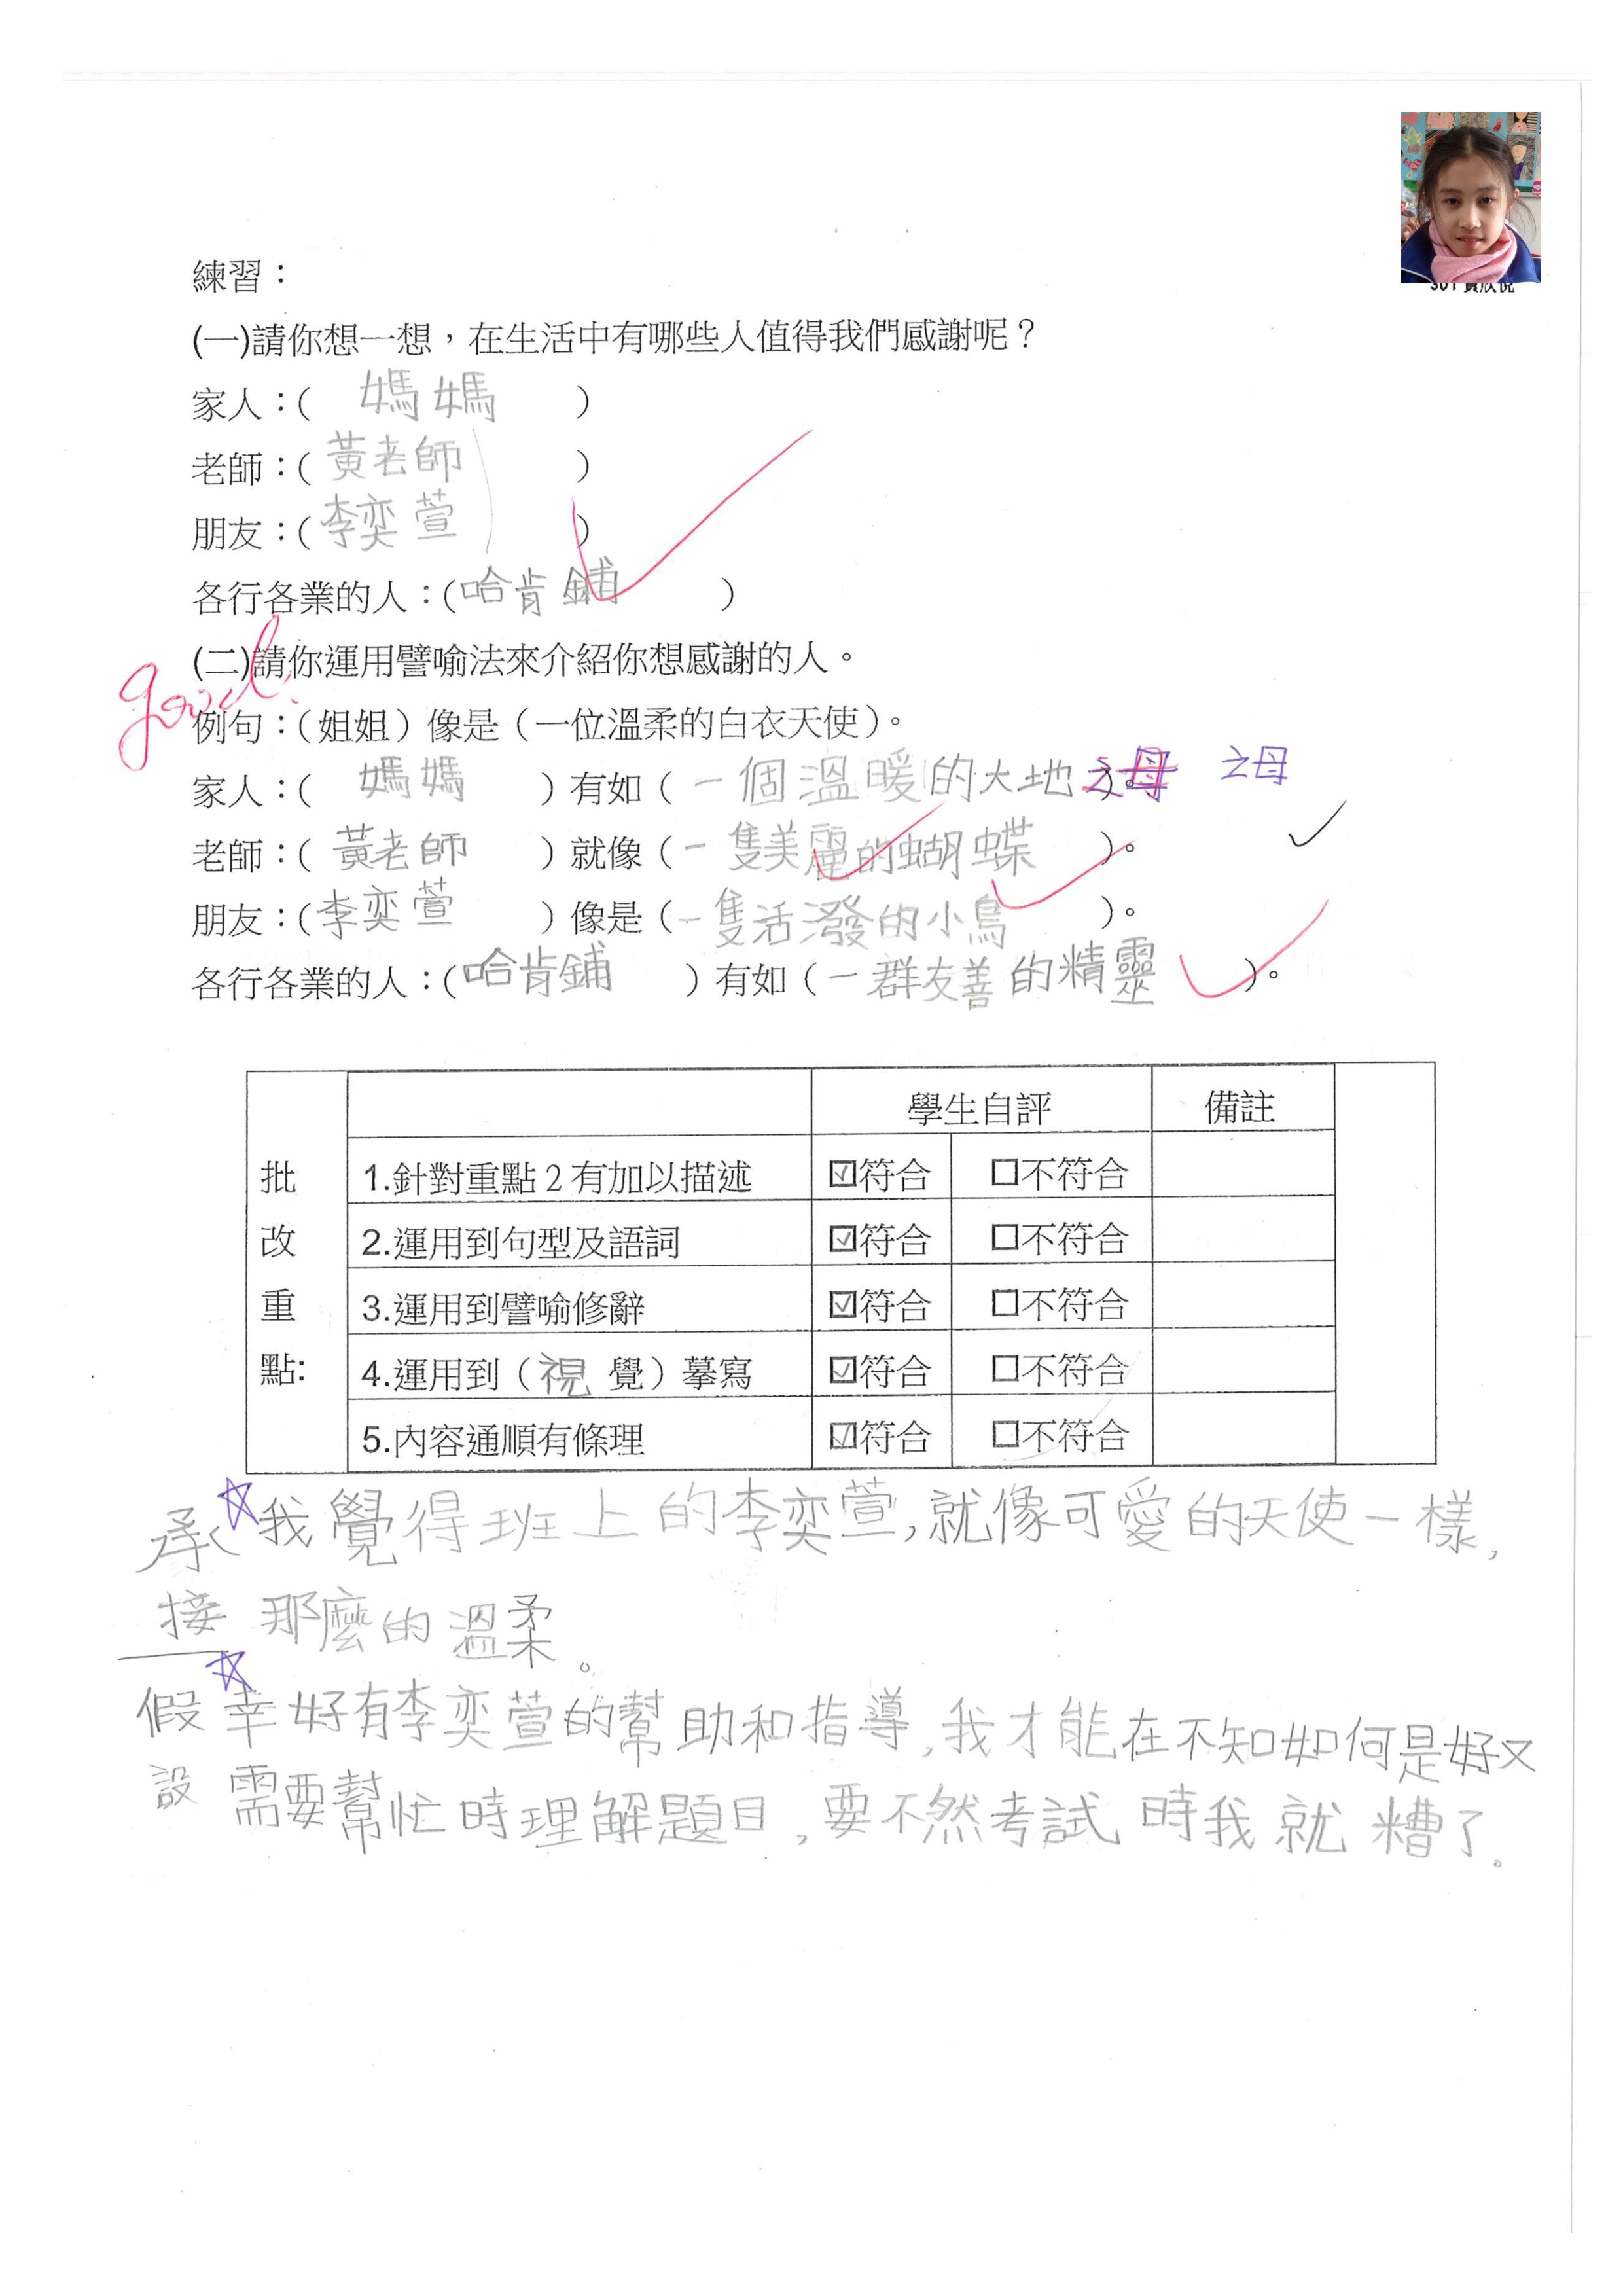 練習：
(一)請你想一想，在生活中有哪些人值得我們感謝呢？
家人：( 媽媽 )
老師：( 黃老師 )
朋友：( 李奕萱 )
各行各業的人：(哈肯鋪 )
good!
(二)請你運用譬喻法來介紹你想感謝的人。
例句：（姐姐）像是（一位溫柔的白衣天使）。
家人：( 媽媽 ) 有如（一個溫暖的大地之母）。 之母
老師：( 黃老師 ) 就像（一隻美麗的蝴蝶 )。
朋友：(李奕萱 ) 像是（一隻活潑的小鳥 )。
各行各業的人：(哈肯鋪 ) 有如（一群友善的精靈 )。
學生自評 備註
批改重點:
1.針對重點2有加以描述 ☑符合 □不符合
2.運用到句型及語詞 ☑符合 □不符合
3.運用到譬喻修辭 ☑符合 □不符合
4.運用到（視覺）摹寫 ☑符合 □不符合
5.內容通順有條理 ☑符合 □不符合
承 ☆我覺得班上的李奕萱,就像可愛的天使一樣,
接 那麼的溫柔。
假 ☆幸好有李奕萱的幫助和指導,我才能在不知如何是好又
設 需要幫忙時理解題目,要不然考試時我就糟了。